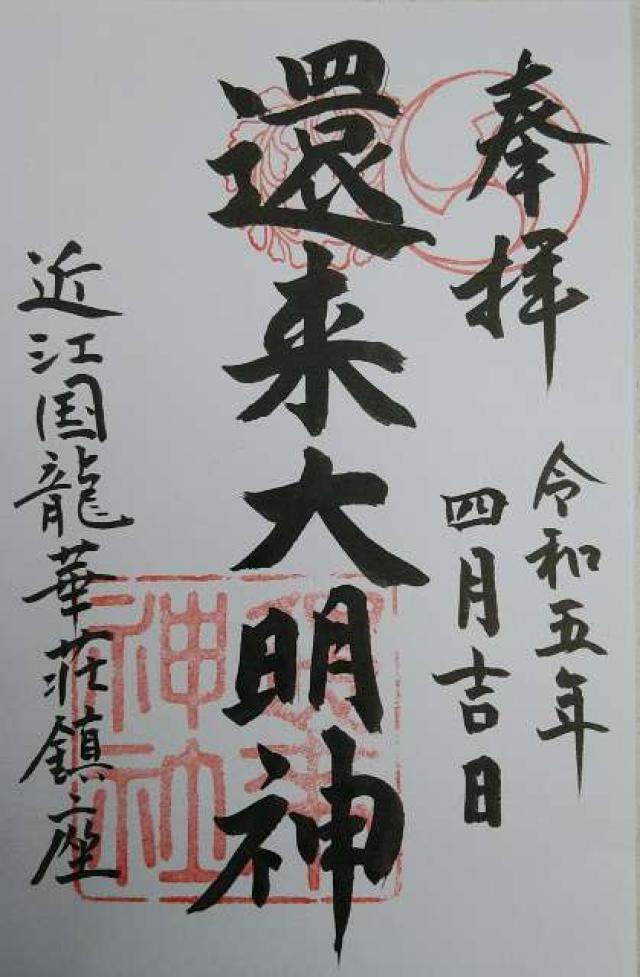 奉拝
令和五年
四月吉日
還来大明神
近江国龍華荘鎮座
還来
神社